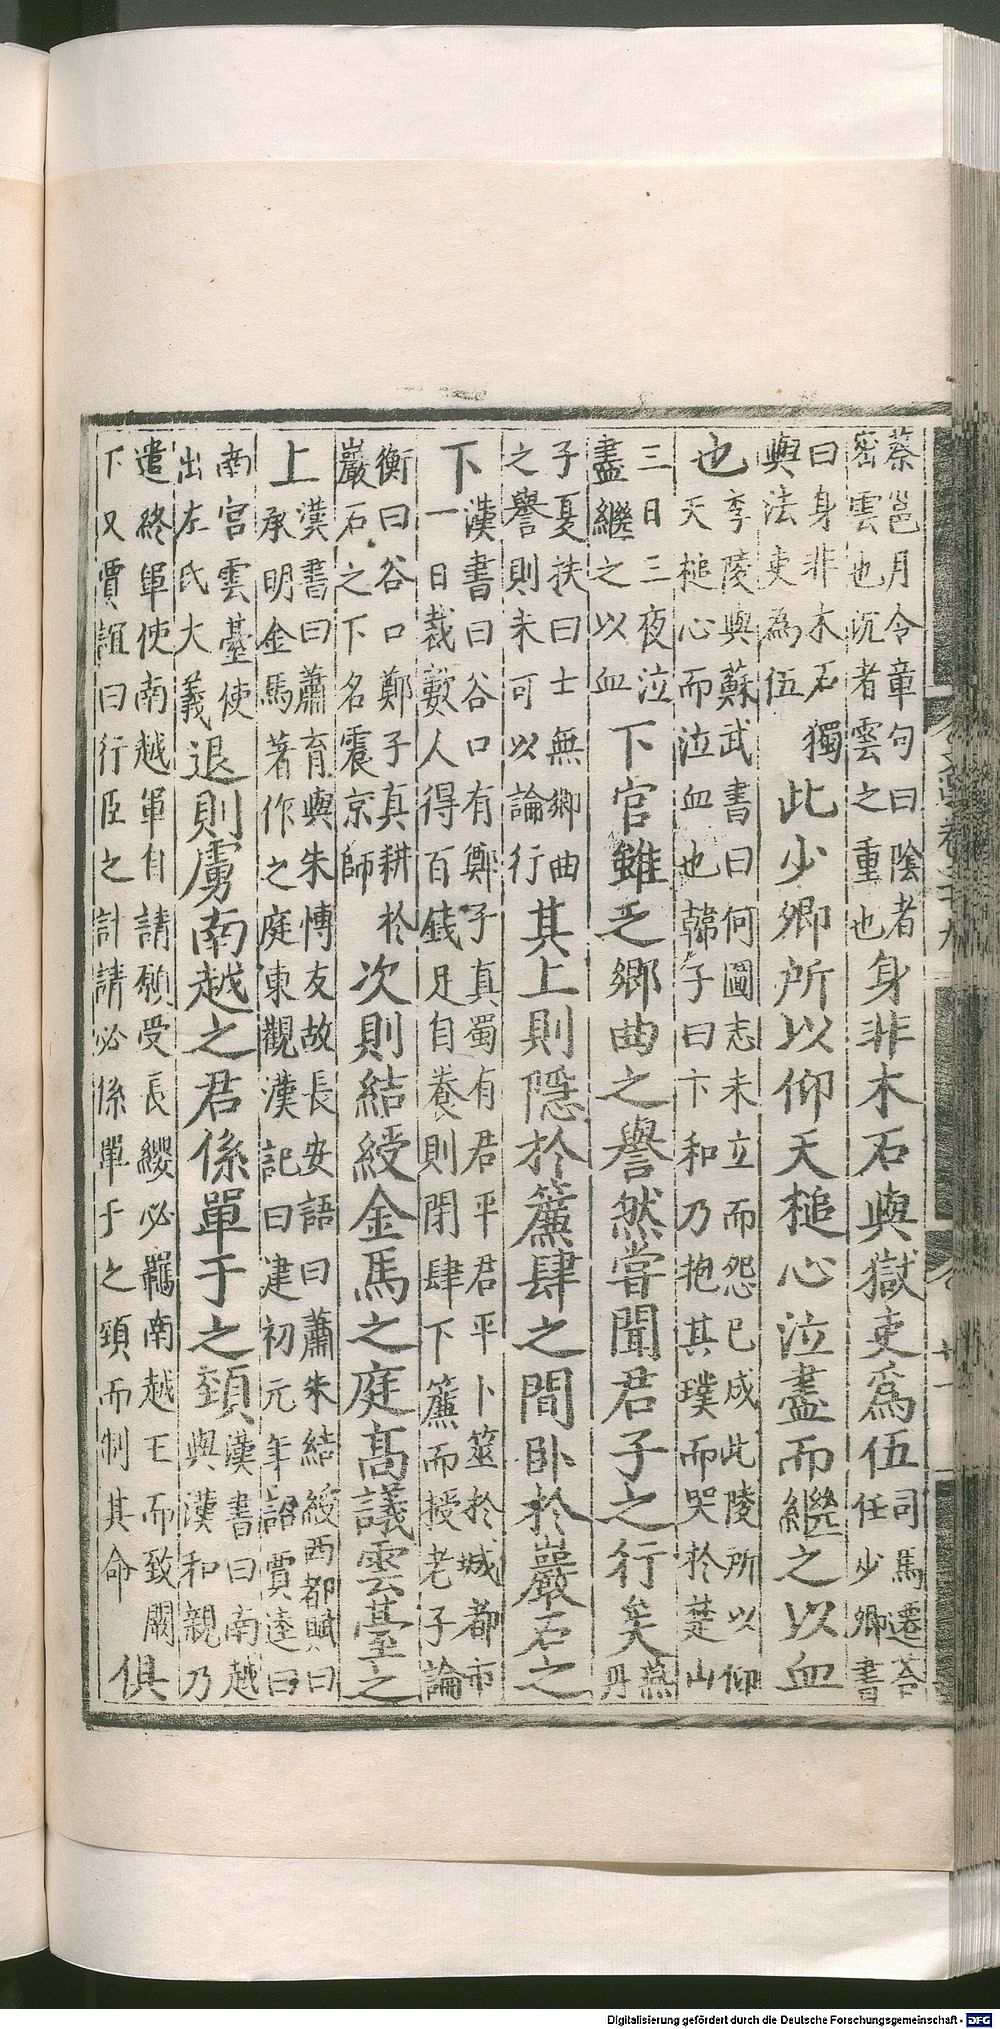 蔡邕月令章句曰陰者
密雲也沉者雲之重也
身非木石與獄吏爲伍
司馬遷荅
任少卿書
曰身非木石獨
與法吏為伍
此少卿所以仰天槌心泣盡而繼之以血
也
李陵與蘇武書曰何圖志未立而怨已成此陵所以仰
天槌心而泣血也韓子曰卞和乃抱其璞而哭於楚山
三日三夜泣
盡繼之以血
下官雖乏鄉曲之譽然嘗聞君子之行矣
燕
丹
子夏扶曰士無鄉曲
之譽則未可以論行
其上則隱於簾肆之間卧於巖石之
下
漢書曰谷口有鄭子真蜀有君平君平卜筮於城都市
一日裁數人得百錢足自養則閉肆下簾而授老子論
衡曰谷口鄭子真耕於
巖石之下名震京師
次則結綬金馬之庭高議雲臺之
上
漢書曰蕭育與朱愽友故長安語曰蕭朱結綬西都賦曰
承明金馬著作之庭東觀漢記曰建初元年詔賈逵曰
南宮雲臺使
出左氏大義
退則虜南越之君係單于之頸
漢書曰南越
與漢和親乃
遣終軍使南越軍自請願受長纓必羈南越王而致闕
下又賈誼曰行臣之計請必係單于之頸而制其命
俱
卷二十九
廿一
Digitalisierung gefördert durch die Deutsche Forschungsgemeinschaft - DFG